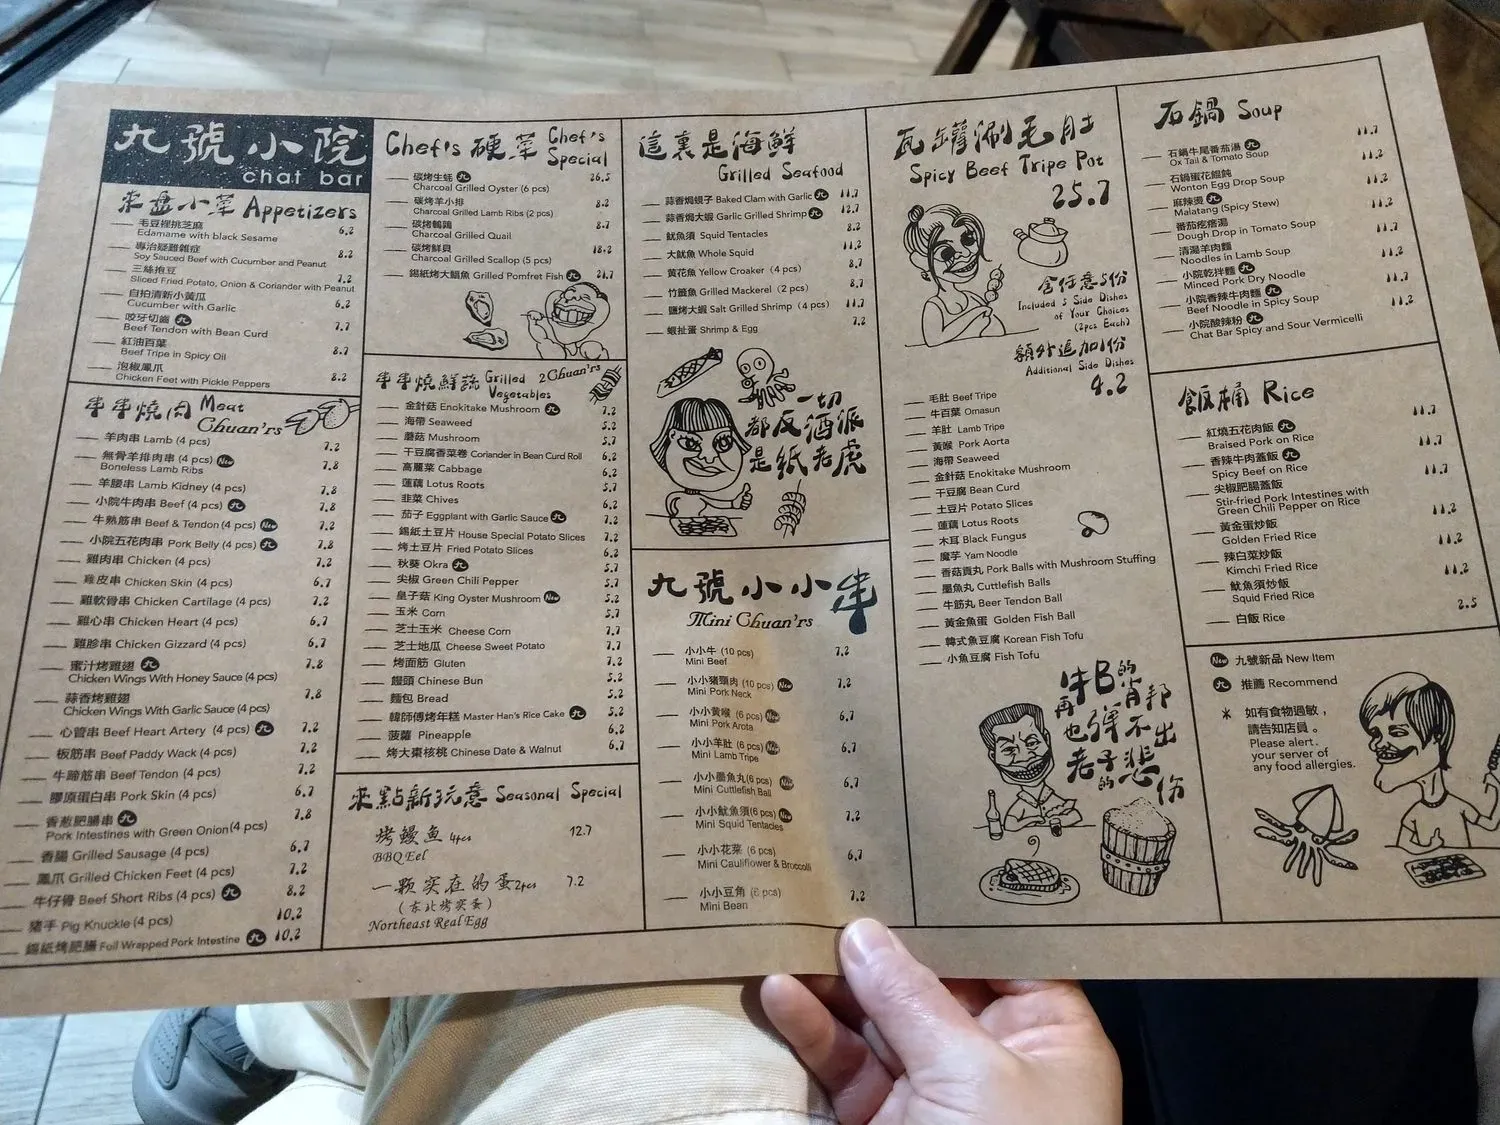 九號小院
chat bar
來盤小菜 Appetizers
毛豆裡挑芝麻 6.2
Edamame with black Sesame
專治疑難雜症 8.2
Soy Sauced Beef with Cucumber and Peanut
三絲抱豆 7.2
Sliced Fried Potato, Onion & Coriander with Peanut
自拍清新小黃瓜 6.2
Cucumber with Garlic
咬牙切齒 九 7.7
Beef Tendon with Bean Curd
紅油百葉 8.7
Beef Tripe in Spicy Oil
泡椒鳳爪 8.2
Chicken Feet with Pickle Peppers
串串燒肉 Meat Chuan'rs
羊肉串 Lamb (4 pcs) 7.2
無骨羊排肉串 (4 pcs) New 7.8
Boneless Lamb Ribs
羊腰串 Lamb Kidney (4 pcs) 7.8
小院牛肉串 Beef (4 pcs) 九 7.8
牛熟筋串 Beef & Tendon (4 pcs) New 7.2
小院五花肉串 Pork Belly (4 pcs) 九 7.8
雞肉串 Chicken (4 pcs) 7.2
雞皮串 Chicken Skin (4 pcs) 6.7
雞軟骨串 Chicken Cartilage (4 pcs) 7.2
雞心串 Chicken Heart (4 pcs) 6.7
雞胗串 Chicken Gizzard (4 pcs) 6.7
蜜汁烤雞翅 九 7.8
Chicken Wings With Honey Sauce (4 pcs)
蒜香烤雞翅 7.8
Chicken Wings With Garlic Sauce (4 pcs)
心管串 Beef Heart Artery (4 pcs) 九 7.2
板筋串 Beef Paddy Wack (4 pcs) 7.2
牛蹄筋串 Beef Tendon (4 pcs) 7.2
膠原蛋白串 Pork Skin (4 pcs) 6.7
香蔥肥腸串 九 7.8
Pork Intestines with Green Onion (4 pcs)
香腸 Grilled Sausage (4 pcs) 6.7
鳳爪 Grilled Chicken Feet (4 pcs) 7.2
牛仔骨 Beef Short Ribs (4 pcs) 九 8.2
豬手 Pig Knuckle (4 pcs) 10.2
錫紙烤肥腸 Foil Wrapped Pork Intestine 九 10.2
Chef's 硬菜 Chef's Special
碳烤生蚝 九 26.5
Charcoal Grilled Oyster (6 pcs)
碳烤羊小排 8.2
Charcoal Grilled Lamb Ribs (2 pcs)
碳烤鵪鶉 8.7
Charcoal Grilled Quail
碳烤鮮貝 18.2
Charcoal Grilled Scallop (5 pcs)
錫紙烤大鯧魚 Grilled Pomfret Fish 九 21.7
串串燒鮮蔬 Grilled Vegetables Chuan'rs
金針菇 Enokitake Mushroom 九 7.2
海帶 Seaweed 5.2
蘑菇 Mushroom 5.7
干豆腐香菜卷 Coriander in Bean Curd Roll 6.2
高麗菜 Cabbage 6.2
蓮藕 Lotus Roots 5.7
韭菜 Chives 6.2
茄子 Eggplant with Garlic Sauce 九 7.2
錫紙土豆片 House Special Potato Slices 7.2
烤土豆片 Fried Potato Slices 6.2
秋葵 Okra 九 5.7
尖椒 Green Chili Pepper 5.7
皇子菇 King Oyster Mushroom New 5.2
玉米 Corn 5.7
芝士玉米 Cheese Corn 7.7
芝士地瓜 Cheese Sweet Potato 7.7
烤面筋 Gluten 7.2
饅頭 Chinese Bun 5.2
麵包 Bread 5.2
韓師傅烤年糕 Master Han's Rice Cake 九 5.2
菠蘿 Pineapple 6.2
烤大棗核桃 Chinese Date & Walnut 6.7
來點新玩意 Seasonal Special
烤鰻魚 4pcs 12.7
BBQ Eel
一颗实在的蛋 2pcs 7.2
(东北烤实蛋)
Northeast Real Egg
這裏是海鮮
Grilled Seafood
蒜香焗蜆子 Baked Clam with Garlic 九 11.7
蒜香焗大蝦 Garlic Grilled Shrimp 九 12.7
魷魚須 Squid Tentacles 8.2
大魷魚 Whole Squid 11.2
黃花魚 Yellow Croaker (4 pcs) 8.7
竹籤魚 Grilled Mackerel (2 pcs) 8.7
鹽烤大蝦 Salt Grilled Shrimp (4 pcs) 11.7
蝦扯蛋 Shrimp & Egg 7.2
一切
都反酒派
是紙老虎
九號小小串
Mini Chuan'rs
小小牛 (10 pcs) 7.2
Mini Beef
小小豬頸肉 (10 pcs) New 7.2
Mini Pork Neck
小小黃喉 (6 pcs) New 6.7
Mini Pork Arota
小小羊肚 (6 pcs) New 6.7
Mini Lamb Tripe
小小墨魚丸 (6 pcs) New 6.7
Mini Cuttlefish Ball
小小魷魚須 (6 pcs) New 7.2
Mini Squid Tentacles
小小花菜 (6 pcs) 6.7
Mini Cauliflower & Broccoli
小小豆角 (6 pcs) 7.2
Mini Bean
瓦罐涮毛肚
Spicy Beef Tripe Pot
25.7
含任意5份
Included 5 Side Dishes
of Your Choices
(2pcs Each)
額外追加1份
Additional Side Dishes
4.2
毛肚 Beef Tripe
牛百葉 Omasun
羊肚 Lamb Tripe
黃喉 Pork Aorta
海帶 Seaweed
金針菇 Enokitake Mushroom
干豆腐 Bean Curd
土豆片 Potato Slices
蓮藕 Lotus Roots
木耳 Black Fungus
魔芋 Yam Noodle
香菇貢丸 Pork Balls with Mushroom Stuffing
墨魚丸 Cuttlefish Balls
牛筋丸 Beer Tendon Ball
黃金魚蛋 Golden Fish Ball
韓式魚豆腐 Korean Fish Tofu
小魚豆腐 Fish Tofu
再牛B的肖邦
也彈不出
老子的悲伤
石鍋 Soup
石鍋牛尾番茄湯 九 11.7
Ox Tail & Tomato Soup
石鍋蛋花餛飩 11.2
Wonton Egg Drop Soup
麻辣燙 九 11.7
Malatang (Spicy Stew)
番茄疙瘩湯 11.2
Dough Drop in Tomato Soup
清湯羊肉麵 11.7
Noodles in Lamb Soup
小院乾拌麵 九 11.2
Minced Pork Dry Noodle
小院香辣牛肉麵 九 11.7
Beef Noodle in Spicy Soup
小院酸辣粉 九 11.2
Chat Bar Spicy and Sour Vermicelli
飯桶 Rice
紅燒五花肉飯 九 11.7
Braised Pork on Rice
香辣牛肉蓋飯 九 11.7
Spicy Beef on Rice
尖椒肥腸蓋飯 11.7
Stir-fried Pork Intestines with
Green Chili Pepper on Rice
黃金蛋炒飯 11.2
Golden Fried Rice
辣白菜炒飯 11.2
Kimchi Fried Rice
魷魚須炒飯 11.2
Squid Fried Rice
白飯 Rice 2.5
New 九號新品 New Item
九 推薦 Recommend
* 如有食物過敏，
請告知店員。
Please alert.
your server of
any food allergies.